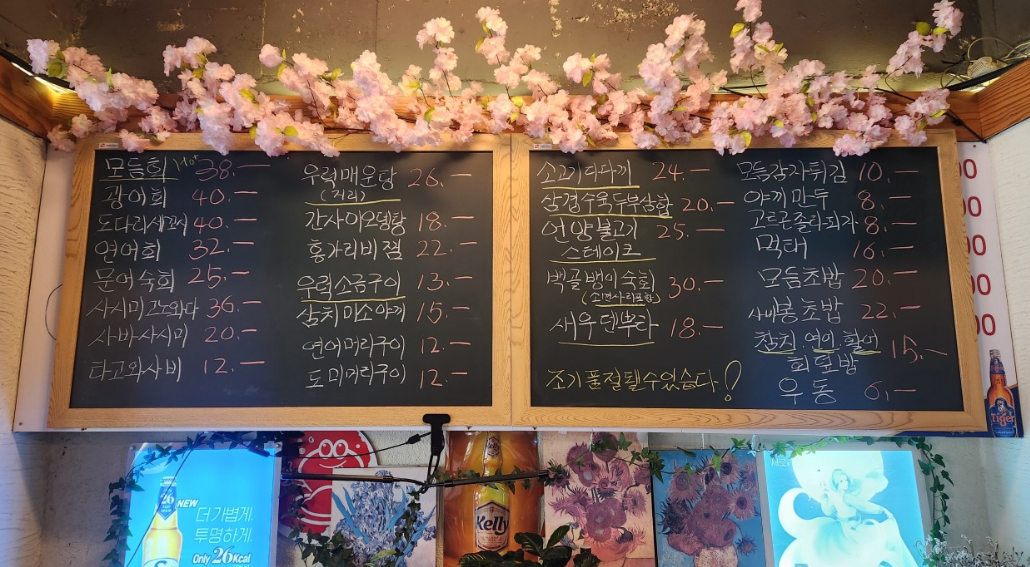 모듬회 38.-
광어회 40.-
도다리세꼬시 40.-
연어회 32.-
문어숙회 25.-
사시미 고노와다 36.-
사바사시미 20.-
타코와사비 12.-
우럭매운탕 26.-
(거리)
간사이오뎅탕 18.-
홍가리비찜 22.-
우럭소금구이 13.-
삼치미소야끼 15.-
연어머리구이 12.-
도미머리구이 12.-
소고기타다끼 24.-
삼겹수육두부삼합 20.-
언양불고기 25.-
스테이크
백골뱅이숙회 30.-
(소면사리포함)
새우덴뿌라 18.-
조기품절될수있습다!
모듬감자튀김 10.-
야끼만두 8.-
고르곤졸라피자 8.-
먹태 16.-
모듬초밥 20.-
사바봉초밥 22.-
참치, 연어, 활어 15.-
회덮밥
우동 6.-
NEW
더 가볍게
투명하게
Only 26Kcal
Kelly
Tiger